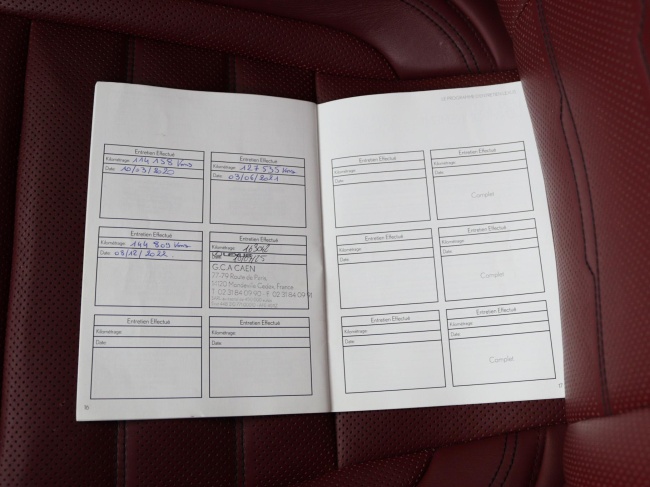 Entretien Effectué
Kilométrage: 114 138 Kms
Date: 10/03/2020
Entretien Effectué
Kilométrage: 127 535 Kms
Date: 03/06/2021
Entretien Effectué
Kilométrage: 144 809 Kms
Date: 03/12/2022
Entretien Effectué
Kilométrage:
Date:
G.C.A CAEN
77-79 Route de Paris,
14120 Mondeville Cedex, France
T. 02 31 84 09 90 | F. 02 31 84 09 91
Entretien Effectué
Kilométrage:
Date:
Entretien Effectué
Kilométrage:
Date:
16
Entretien Effectué
Kilométrage:
Date:
Entretien Effectué
Kilométrage:
Date:
Complet
Entretien Effectué
Kilométrage:
Date:
Entretien Effectué
Kilométrage:
Date:
Complet
Entretien Effectué
Kilométrage:
Date:
Entretien Effectué
Kilométrage:
Date:
Complet
17